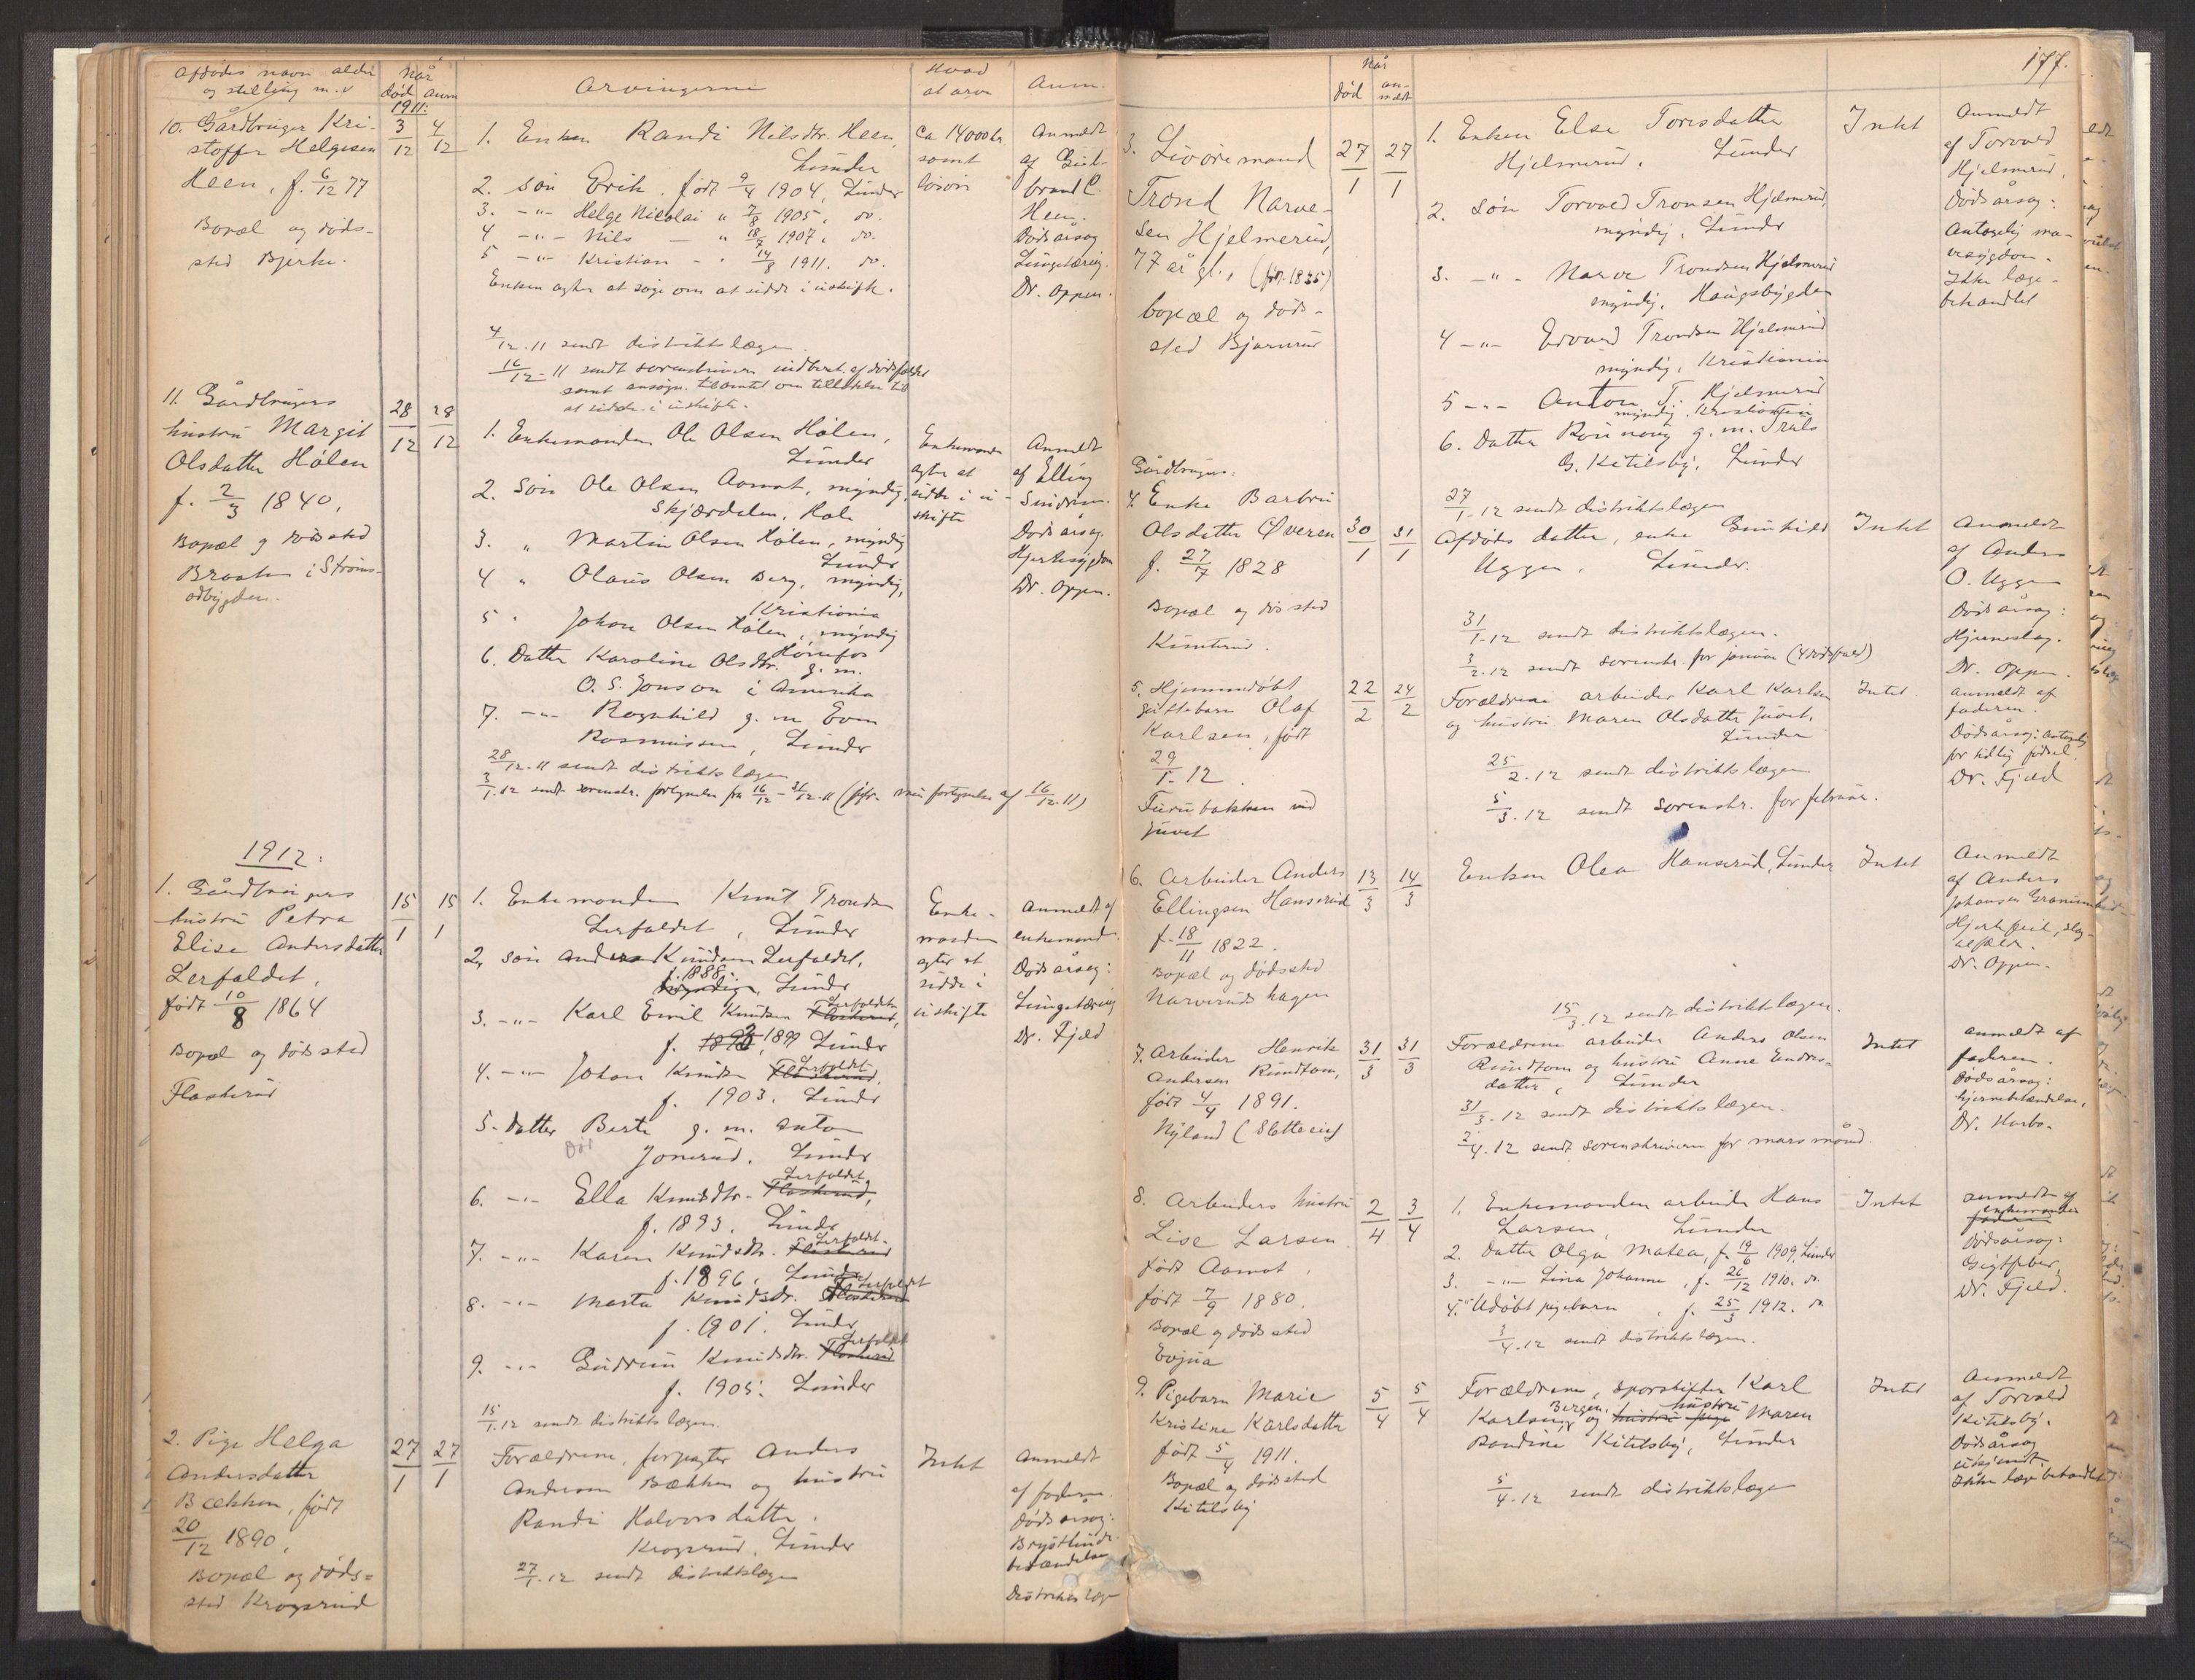 Afdødes navn alder
og stilling m.v
Når
død anm
1911:
Arvingerne
Hvad
at arve
Anm.
10. Gårdbruger Kri-
stoffer Helgesen
Heen, f. 6/12 77
Bopæl og døds-
sted Bjerke.
3/12 4/12
1. Enken Randi Nilsdtr. Heen,
Lunder
2. søn Erik. født 9/4 1904, Lunder
3. -"- Helge Nicolai " 7/8 1905, do.
4 -"- Nils - " 18/7 1907, do.
5 -"- Kristian - " 14/8 1911. do.
Enken agter at søge om at sidde i uskifte.
ca 14000 kr
samt
løsøre
Anmeldt
af Gul-
brand C.
Heen.
Dødsårsag
Lungetæring.
Dr. Oppen.
4/12.11 sendt distriktslægen
16/12-11 sendt sorenskriveren indberet. af dødsfaldet
samt ansøgn. til amtet om tilladelse til
at sidde i uskifte.
11. Gårdbrugers
hustru Margit
Olsdatter Hølen
f. 2/3 1840,
Bopæl og dødssted
Braaten i Strøms-
odbygden.
28/12 28/12
1. Enkemanden Ole Olsen Hølen,
Lunder
2. Søn Ole Olsen Aamot, myndig,
Skjærdalen, Hole
3. " Martin Olsen Hølen, myndig
Lunder
4 " Olaus Olsen Berg, myndig,
Kristiania
5 " Johan Olsen Hølen, myndig
Hønefos
6. Datter Karoline Olsdtr. g. m.
O. S. Jonson i Amerika
7. -"- Ragnhild g. m Even
Rasmussen, Lunder
Enkemanden
agter at
sidde i u-
skifte
Anmeldt
af Elling
Dødsårsag
Hjertesygdom
Dr. Oppen.
28/12.11 sendt distriktslægen
3/1.12 sendt sorenskr. fortegnelse fra 16/12 - 31/12.11 (jfr. min fortegnelse af 16/12.11)
1912:
1. Gårdbrugers
hustru Petra
Elise Andersdatter
Lerfaldet,
født 10/8 1864
Bopæl og dødssted
Flaskerud
15/1 15/1
1. Enkemanden Knut Trondsen
Lerfaldet, Lunder
2, søn Anders Knudsen Lerfaldet,
f. 1888. myndig, Lunder
3. -"- Karl Emil Knudsen Flaskerud, Lerfaldet
f. 1893, 1899 Lunder
4. -"- Johan Knudsen Flaskerud, Lerfaldet
f. 1903. Lunder
5. datter Berte g. m. Anton
Jonsrud. Lunder
6. -"- Ella Knudsdtr. Flaskerud, Lerfaldet,
f. 1893. Lunder
7. -"- Karen Knudsdtr. Flaskerud Lerfaldet
f. 1896, Lunder
8. -"- Marta Knudsdtr. Flaskerud Lerfaldet
f. 1901. Lunder
9. -"- Gudrun Knudsdtr. Flaskerud Lerfaldet
f. 1905. Lunder
Enke-
manden
agter at
sidde i
uskifte
Anmeldt af
enkemand.
Dødsårsag:
Lungetæring
Dr. Fjeld
15/1.12 sendt distriktslægen.
2. Pige Helga
Andersdatter
Bækken, født
20/12 1890,
Bopæl og døds-
sted Krogsrud
27/1 27/1
Forældrene, forpagter Anders
Andersen Bækken og hustru
Randi Halvorsdatter.
Krogsrud, Lunder
27/1.12 sendt distriktslægen
Intet
Anmeldt
af faderen.
Dødsårsag:
Brysthinde-
betændelse
Distriktslægen
177.
Når
død an-
meldt
3. Livøremand
Trond Narve-
sen Hjelmerud,
77 år gl., (før. 1835)
bopæl og døds-
sted Bjørnerud
27/1 27/1
1. Enken Else Toresdatter
Hjelmerud. Lunder
2. Søn Torvald Tronsen Hjelmerud,
myndig. Lunder
3. -"- Narve Trondsen Hjelmerud
myndig. Haugsbygden
4 -"- Edvard Trondsen Hjelmerud
myndig, Kristiania
5 -"- Anton T. Hjelmerud
myndig. Kristiania
6. Datter Rønnoug g. m. Truls
G. Kitilsby, Lunder
27/1-12 sendt distriktslægen
Intet
Anmeldt
af Torvald
Hjelmerud.
Dødsårsag:
Antagelig ma-
vesygdom.
Ikke læge-
behandlet
Gårdbrugers:
4. Enke Barbro
Olsdatter Øveren
f. 27/7 1828
Bopæl og dødssted
30/1 31/1
Afdødes datter, enke Gunhild
Uggen, Lunder.
31/1-12 sendt distriktslægen.
3/2.12 sendt sorenskr. for januar (4 dødsfald)
Intet
Anmeldt
af Anders
O. Uggen
Dødsårsag:
Hjerneslag.
Dr. Oppen.
5. Hjemmedøbt
guttebarn Olaf
Karlsen, født
29/1.12
Furubakken ved
Juvet
22/2 24/2
Forældrene arbeider Karl Karlsen
og hustru Maren Olsdatter Juvet,
Lunder
25/2.12 sendt distriktslægen
5/3.12 sendt sorenskr. for februar.
Intet.
anmeldt af
faderen.
Dødsårsag: antagelig
for tidlig fødsel.
Dr. Fjeld
6. Arbeider Anders
Ellingsen Hanserud
f. 18/11 1822.
Bopæl og dødssted
Narverudshagen
13/3 14/3
Enken Olea Hanserud, Lunder
15/3.12 sendt distriktslægen.
Intet
Anmeldt
af Anders
Johansen
Hjertefeil,
Dr. Oppen.
7. Arbeider Henrik
Andersen Rundtom,
født 4/4 1891.
Nyland (Sletteeie)
31/3 31/3
Forældrene arbeider Anders Olsen
Rundtom og hustru Anne Endres-
datter, Lunder
31/3.12 sendt distriktslægen.
2/4.12 sendt sorenskriveren for mars måned.
Intet
anmeldt af
faderen.
Dødsårsag:
hjernebetændelse,
Dr. Harbo.
8. Arbeiders hustru
Lise Larsen
født Aamot,
født 7/9 1880.
Bopæl og dødssted
Evjua
2/4 3/4
1. Enkemanden arbeider Hans
Larsen, Lunder
2. Datter Olga Matea, f. 19/6 1909, Lunder
3. -"- Lina Johanne, f. 26/12 1910. do.
4. Udøbt pigebarn, f. 25/3 1912. do
3/4.12 sendt distriktslægen.
Intet
anmeldt af
faderen enkemanden
Dødsårsag:
Gigtfeber,
Dr. Fjeld.
9. Pigebarn Marie
Kristine Karlsdatter
født 5/4 1911.
Bopæl og dødssted
Kitilsby
5/4 5/4
Forældrene, sporskifter Karl
Karlsen, Bergen, og hustru pige hustru Maren
Bondine Kitilsby, Lunder
5/4.12 sendt distriktslægen
Intet
Anmeldt
af Torvald
Kitilsby.
Dødsårsag
ukjendt.
Ikke lægebehandlet